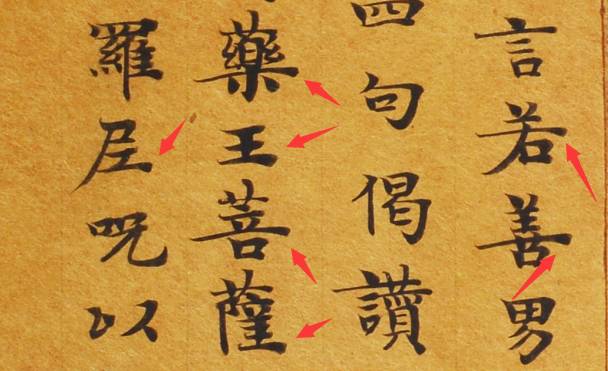 言若善男
四句偈讀
藥王菩薩
羅尼呪以